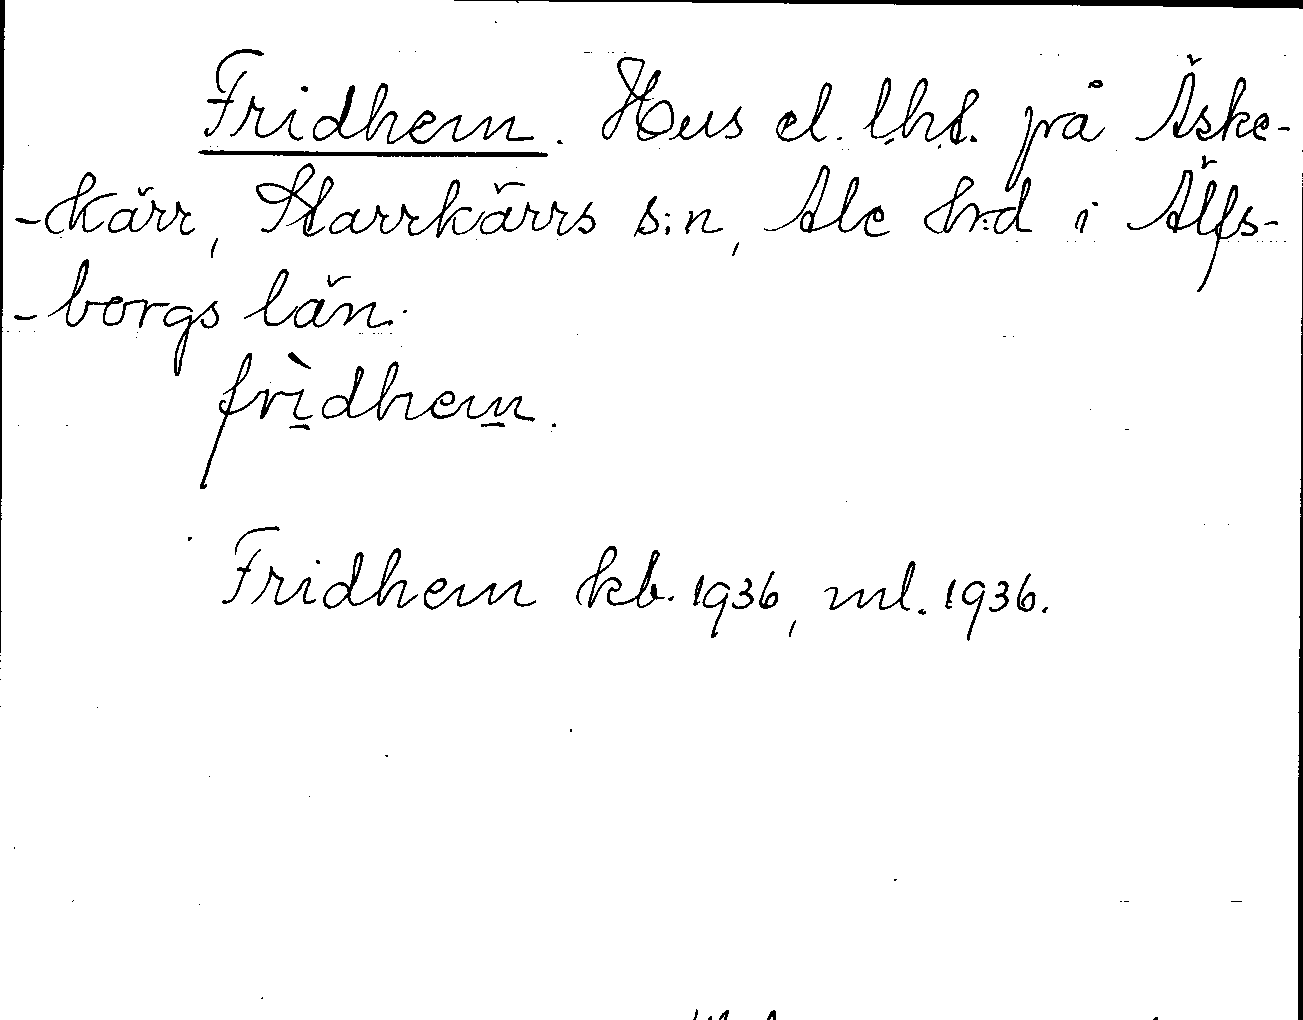 Fridhem. Hus el. lht. på Äske-
-kärr, Starrkärrs s:n, Ale hrd i Älfs-
-borgs län.
frìdhem.
Fridhem kb. 1936, ml. 1936.